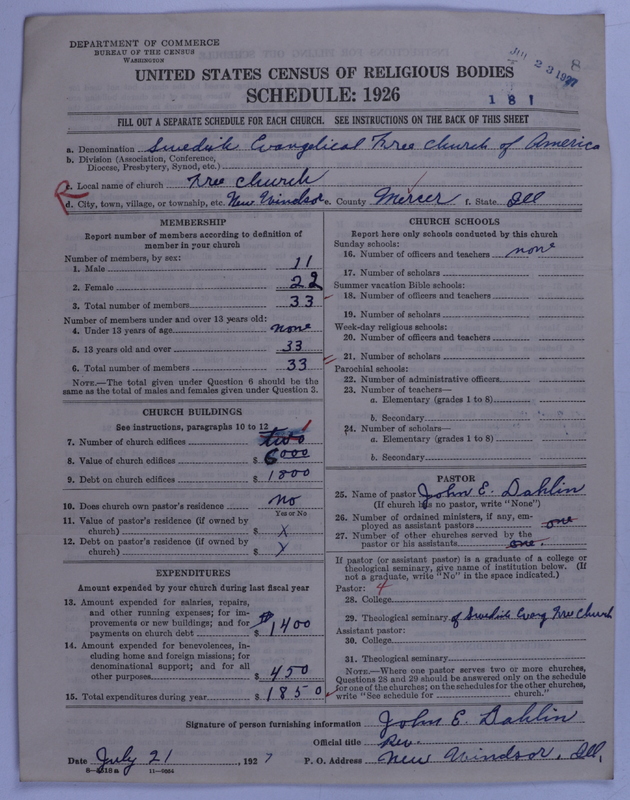 DEPARTMENT OF COMMERCE
BUREAU OF THE CENSUS
WASHINGTON
8
JUL 23 1927
UNITED STATES CENSUS OF RELIGIOUS BODIES
SCHEDULE: 1926
181
FILL OUT A SEPARATE SCHEDULE FOR EACH CHURCH. SEE INSTRUCTIONS ON THE BACK OF THIS SHEET
a. Denomination Swedish Evangelical Free Church of America
b. Division (Association, Conference,
Diocese, Presbytery, Synod, etc.)
c. Local name of church Free Church
d. City, town, village, or township, etc. New Windsor e. County Mercer f. State Ill
MEMBERSHIP
Report number of members according to definition of
member in your church
Number of members, by sex:
1. Male 11
2. Female 22
3. Total number of members 33
Number of members under and over 13 years old:
4. Under 13 years of age none
5. 13 years old and over 33
6. Total number of members 33
NOTE.—The total given under Question 6 should be the
same as the total of males and females given under Question 3.
CHURCH BUILDINGS
See instructions, paragraphs 10 to 12
7. Number of church edifices two 1
8. Value of church edifices $ 6000
9. Debt on church edifices $ 1800
10. Does church own pastor's residence no
Yes or No
11. Value of pastor's residence (if owned by
church) $ X
12. Debt on pastor's residence (if owned by
church) $
EXPENDITURES
Amount expended by your church during last fiscal year
13. Amount expended for salaries, repairs,
and other running expenses; for im-
provements or new buildings; and for
payments on church debt $ 1400
14. Amount expended for benevolences, in-
cluding home and foreign missions; for
denominational support; and for all
other purposes $ 450
15. Total expenditures during year $ 1850
CHURCH SCHOOLS
Report here only schools conducted by this church
Sunday schools:
16. Number of officers and teachers none
17. Number of scholars
Summer vacation Bible schools:
18. Number of officers and teachers
19. Number of scholars
Week-day religious schools:
20. Number of officers and teachers
21. Number of scholars
Parochial schools:
22. Number of administrative officers
23. Number of teachers—
a. Elementary (grades 1 to 8)
b. Secondary
24. Number of scholars—
a. Elementary (grades 1 to 8)
b. Secondary
PASTOR
25. Name of pastor John E. Dahlin
(If church has no pastor, write "None")
26. Number of ordained ministers, if any, em-
ployed as assistant pastors one
27. Number of other churches served by the
pastor or his assistants one
If pastor (or assistant pastor) is a graduate of a college or
theological seminary, give name of institution below. (If
not a graduate, write "No" in the space indicated.)
Pastor: 4
28. College
29. Theological seminary of Swedish Evang Free Church
Assistant pastor:
30. College
31. Theological seminary
NOTE.—Where one pastor serves two or more churches,
Questions 28 and 29 should be answered only on the schedule
for one of the churches; on the schedules for the other churches,
write "See schedule for church."
Signature of person furnishing information John E. Dahlin
Official title Rev.
Date July 21, 1927 P. O. Address New Windsor, Ill.
11—9064